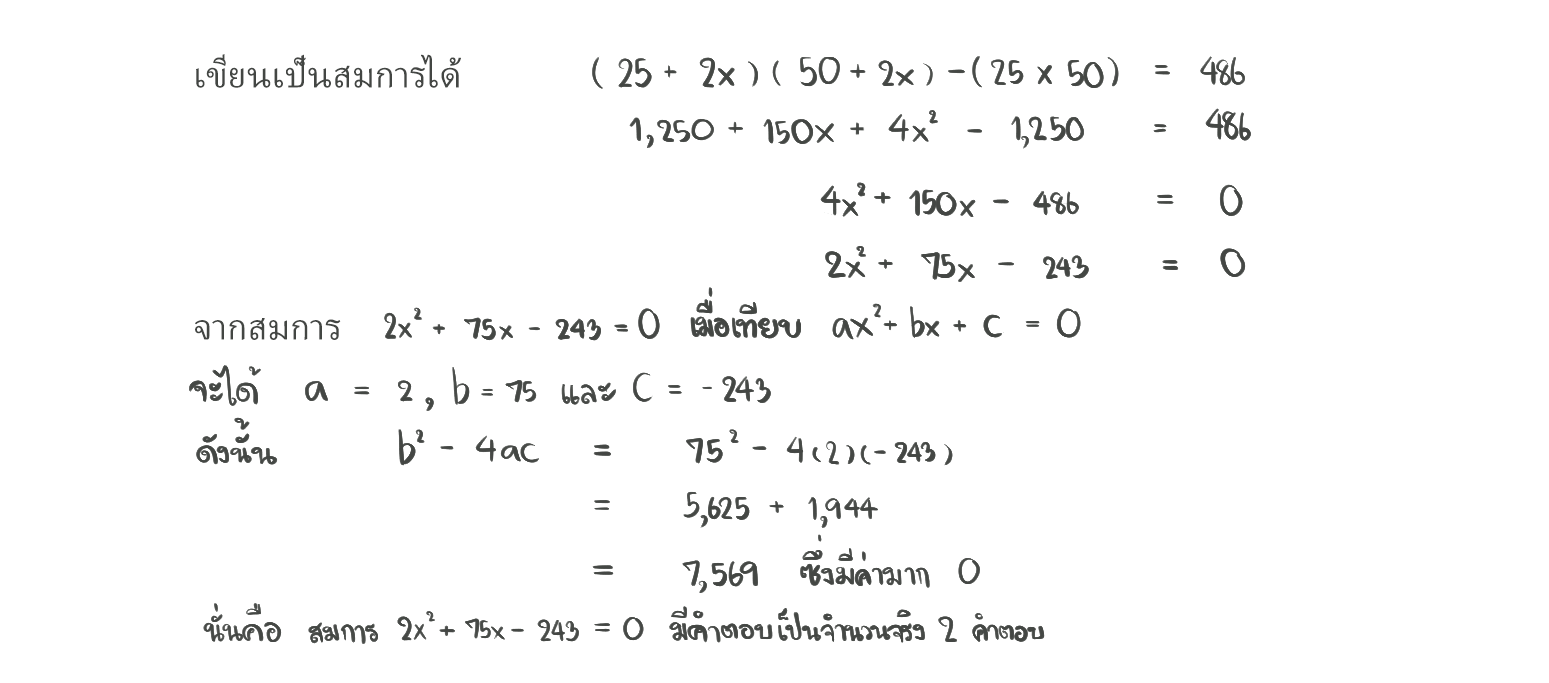 เขียนเป็นสมการได้ (25 + 2x)(50 + 2x) - (25 x 50) = 486
1,250 + 150x + 4x² - 1,250 = 486
4x² + 150x - 486 = 0
2x² + 75x - 243 = 0
จากสมการ 2x² + 75x - 243 = 0 เมื่อเทียบ ax² + bx + c = 0
จะได้ a = 2, b = 75 และ C = -243
ดังนั้น b² - 4ac = 75² - 4(2)(-243)
= 5,625 + 1,944
= 7,569 ซึ่งมีค่ามาก 0
นั่นคือ สมการ 2x² + 75x - 243 = 0 มีคำตอบเป็นจำนวนจริง 2 คำตอบ